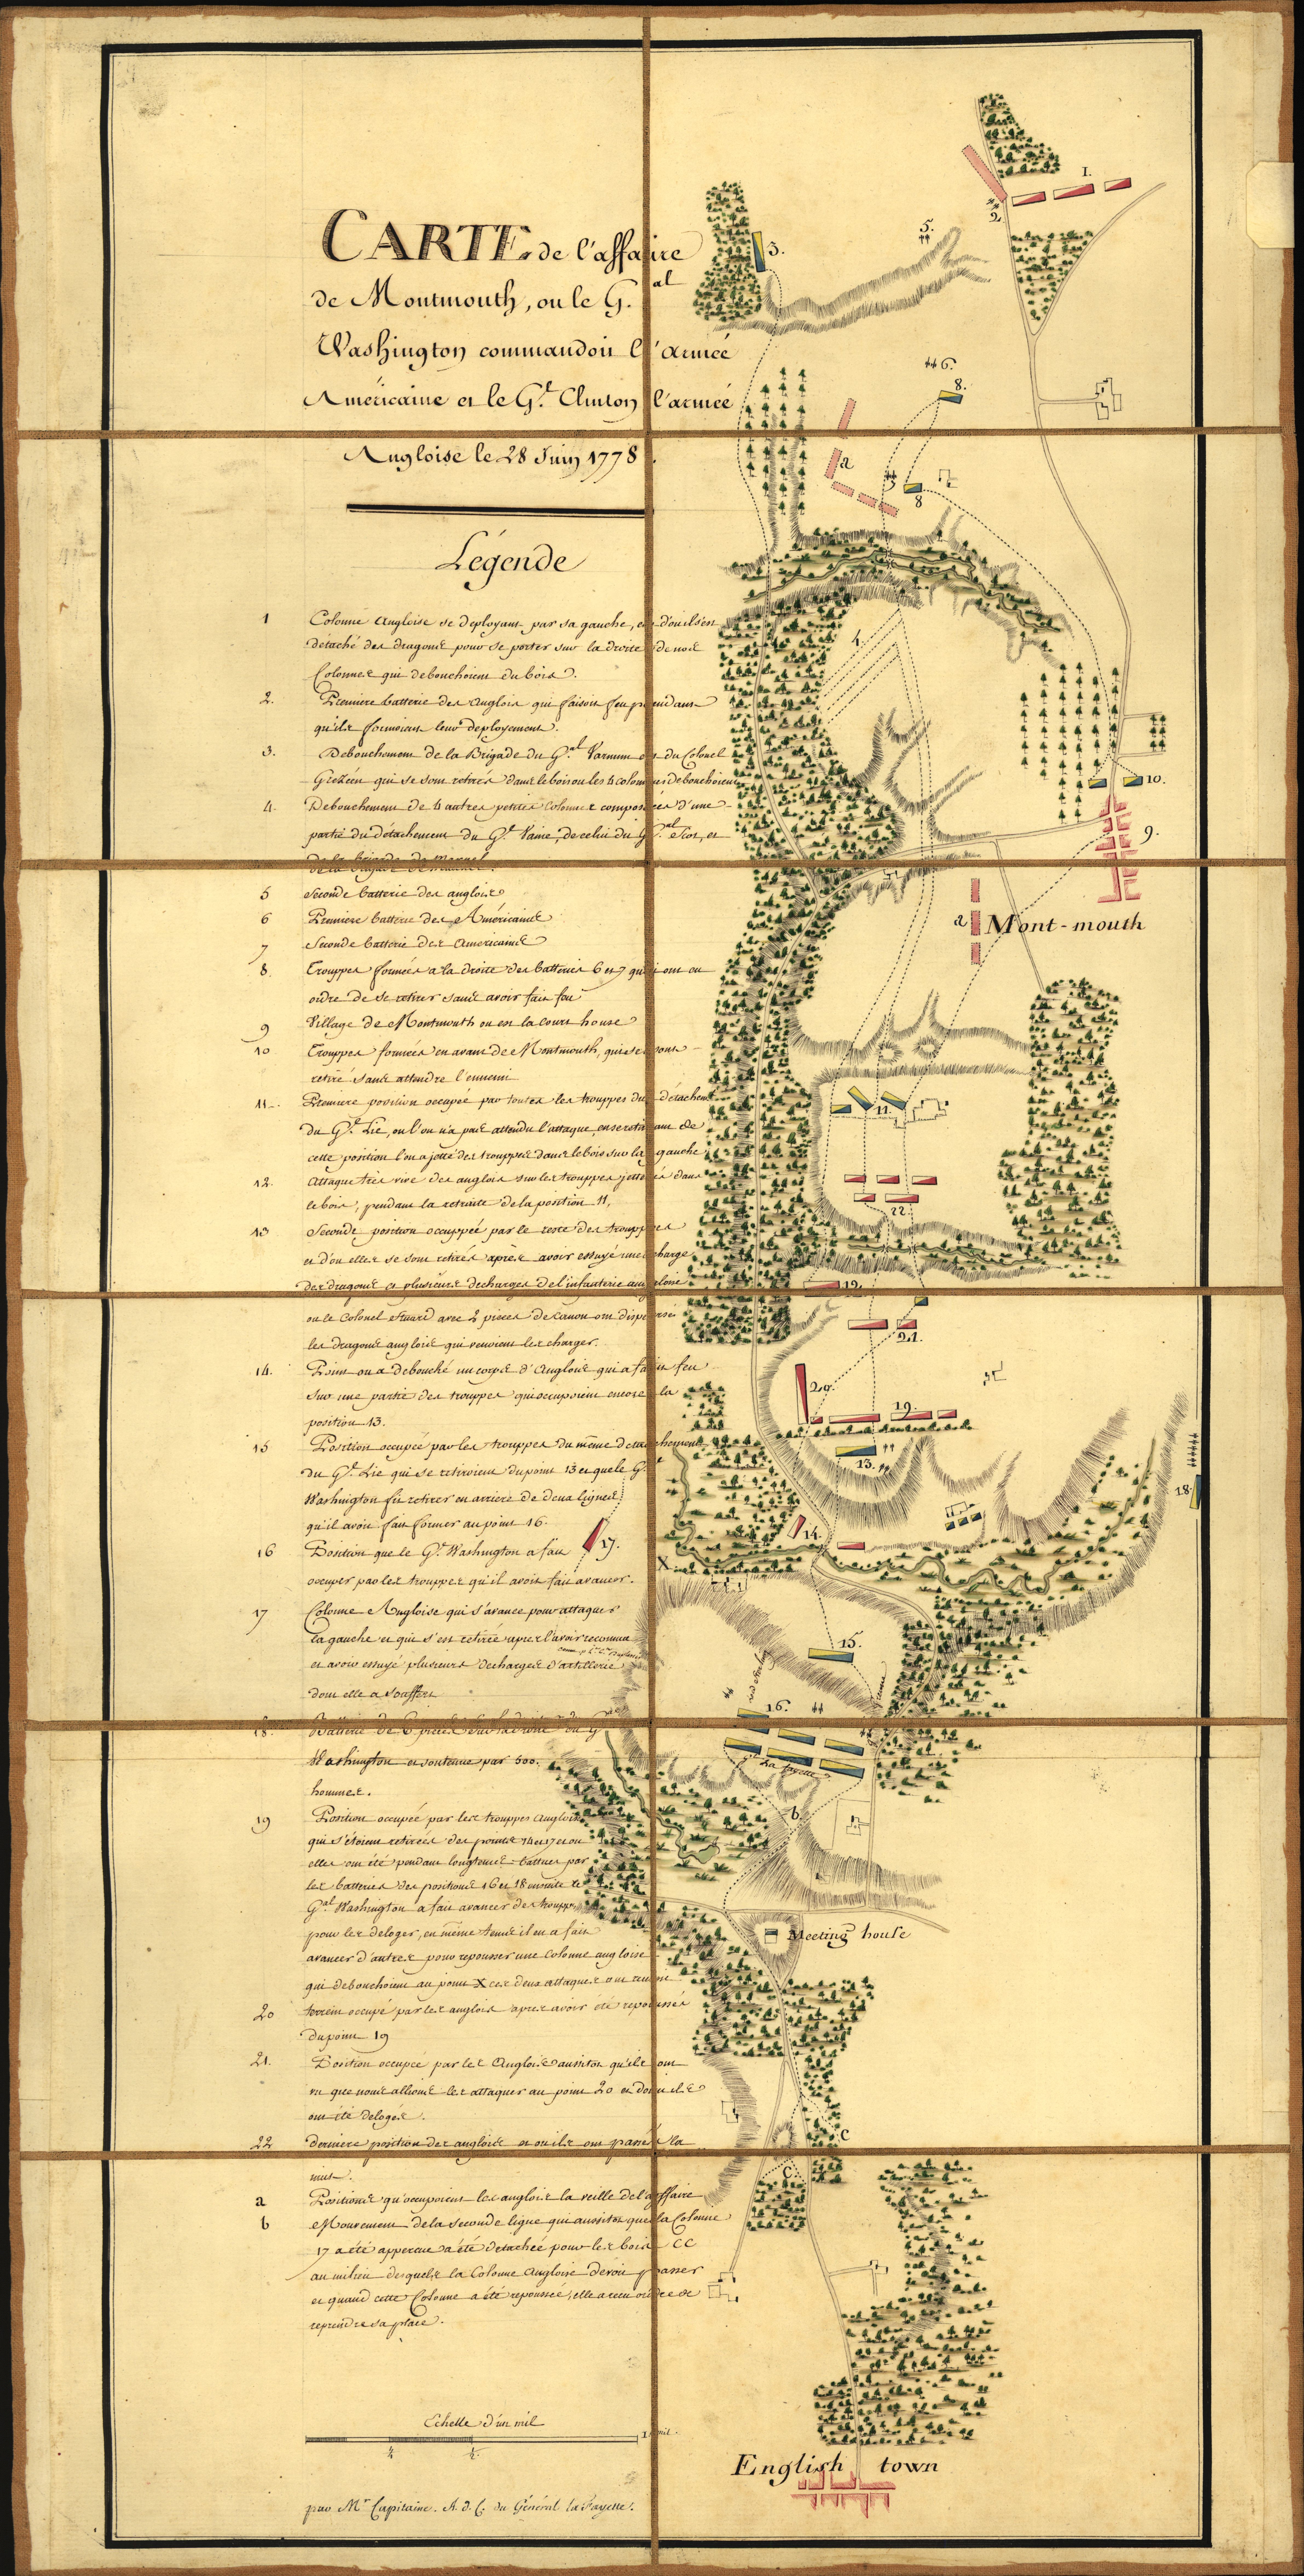 CARTE de l'affaire
de Montmouth, ou le G.al
Washington commandoit l'armée
Américaine et le G.l Clinton l'armée
Angloise le 28 Juin 1778.
Légende
1 Colonne Angloise se deployant par sa gauche, et d'ou ils ont
détaché des dragons pour se porter sur la droite de nos
Colonnes qui debouchoient du bois.
2. Premiere batterie des Anglois qui faisoit feu pendant
qu'ils formoient leur deployement.
3. Debouchement de la Brigade du G.al Varnum et du Colonel
Grezeen qui se sont retirés dans le bois ou les 4 colonnes debouchoient
4. Debouchement de 4 autres petites Colonnes composées d'une
partie du détachement du G.l Vaine, de celui du G.al Scot, et
de la Brigade de Maxuel.
5 Seconde batterie des anglois
6 Premiere batterie des Américains
7 Seconde batterie des Américains
8. Trouppes formées a la droite des batteries 6 et 7 qui ont eu
ordre de se retirer sans avoir fait feu
9 Village de Montmouth ou est la court house
10 Trouppes formées en avant de Montmouth, qui se sont
retiré sans attendre l'ennemi
11. Premiere position occupée par toutes les trouppes du détachemt
du G.l Lie, ou l'on n'a pas attendu l'attaque, en se retirant de
cette position l'on a jetté des trouppes dans le bois sur la gauche
12. Attaque très vive des anglois sur les trouppes jettées dans
le bois, pendant la retraite de la position 11,
13 Seconde position occuppée par le reste des trouppes
et d'ou elles se sont retirés après avoir essuyé une charge
des dragons et plusieurs decharges de l'infanterie angloise
ou le Colonel Stuard avec 2 pieces de Canon ont dispersé
les dragons anglois qui venoient les charger.
14. Point ou a debouché un corps d'Anglois qui a fait feu
sur une partie des trouppes qui occupoient encore la
position 13.
15 Position occupée par les trouppes du même detachement
du G.l Lie qui se retiroient du point 13 et que le G.l
Washington fit retirer en arriere de deux lignes
qu'il avoit fait former au point 16.
16 Position que le G.l Washington a fait
occuper par les trouppes qu'il avoit fait avancer.
17 Colonne Angloise qui s'avance pour attaquer
la gauche et qui s'est retirée apres l'avoir reconnu
et avoir essuyé plusieurs decharges d'artillerie
dont elle a souffert
18. Batterie de 6 pieces sur la droite du G.al
Washington et soutenue par 500.
hommes.
19 Position occupée par les trouppes Angloises
qui s'étoient retirées des points 14 et 17 et ou
elles ont été pendant longtems battues par
les batteries des positions 16 et 18 ensuite le
G.al Washington a fait avancer des trouppes
pour les deloger, en même tems il en a fait
avancer d'autres pour repousser une Colonne angloise
qui debouchoient au point X ces deux attaques ont reussi
20 terrein occupé par les anglois apres avoir été repoussés
du point 19
21. Position occupée par les Anglois aussitôt qu'ils ont
vu que nous allions les attaquer au point 20 et d'ou ils
ont été delogés.
22 derniere position des anglois et ou ils ont passé la
nuit.
a Positions qu'occupoient les anglois la veille de l'affaire
b Mouvement de la seconde ligne qui aussitôt que la Colonne
17 a été apperçue a été detachée pour les bois CC
au milieu desquels la Colonne Angloise devoit passer
et quand cette Colonne a été repoussée, elle a reçu ordre de
reprendre sa place.
Echelle d'un mil
1/4 1/2 1 mil.
par M.r Capitaine. A. d. C. du Général la Fayette.
1.
2
3.
5.
6.
8.
a
7
8
4.
10.
9.
a
Mont-mouth
11.
22.
12.
21.
20.
19.
13.
18.
14.
X
17.
15.
16.
La fayette
b.
Meeting house
C
C.
English town